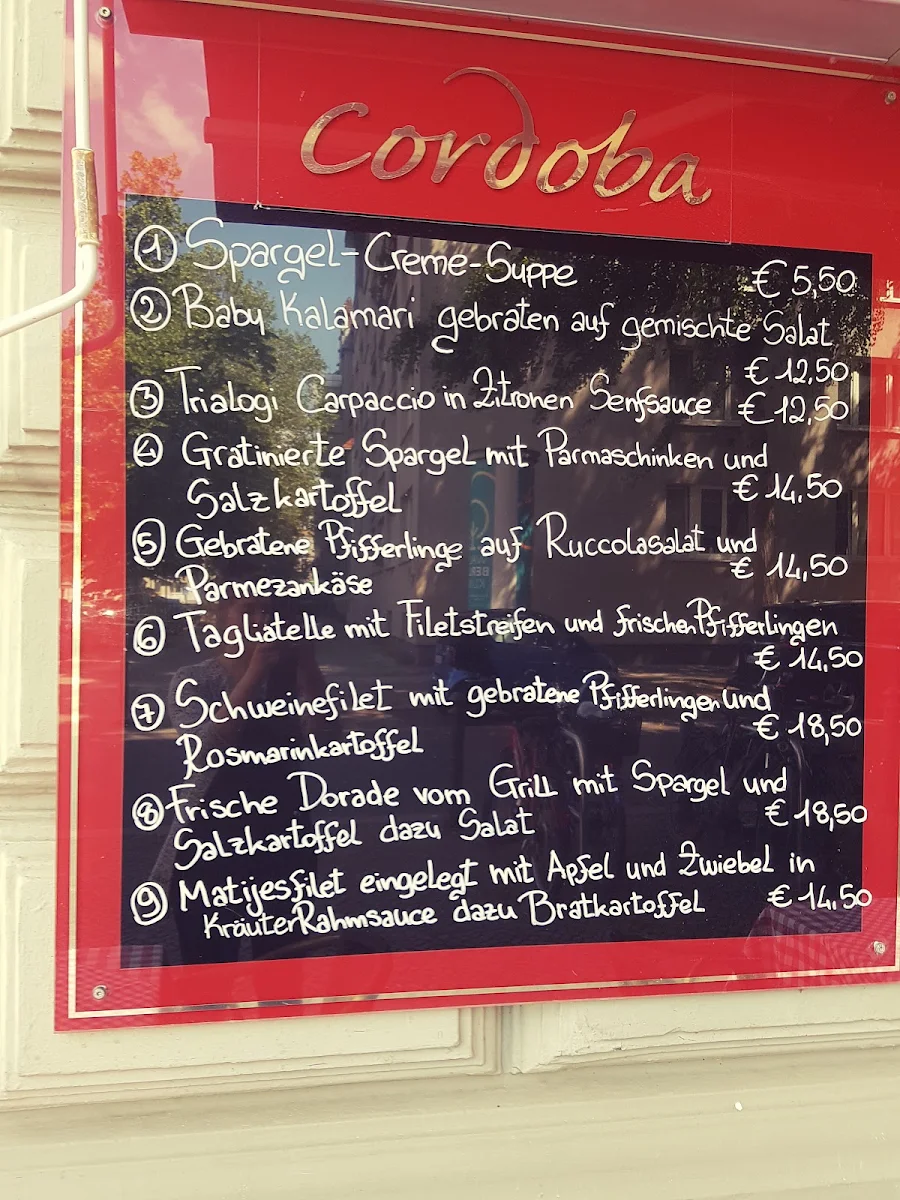 Cordoba
① Spargel-Creme-Suppe € 5,50
② Baby Kalamari gebraten auf gemischte Salat
€ 12,50
③ Trialogi Carpaccio in Zitronen Senfsauce € 12,50
④ Gratinierte Spargel mit Parmaschinken und
Salzkartoffel € 14.50
⑤ Gebratene Pfifferlinge auf Ruccolasalat und
Parmezankäse € 14,50
⑥ Tagliatelle mit Filetstreifen und frischen Pfifferlingen
€ 14,50
⑦ Schweinefilet mit gebratene Pfifferlingen und
Rosmarinkartoffel € 18,50
⑧ Frische Dorade vom Grill mit Spargel und
Salzkartoffel dazu Salat € 18,50
⑨ Matijesfilet eingelegt mit Apfel und Zwiebel in
KräuterRahmsauce dazu Bratkartoffel € 14.50